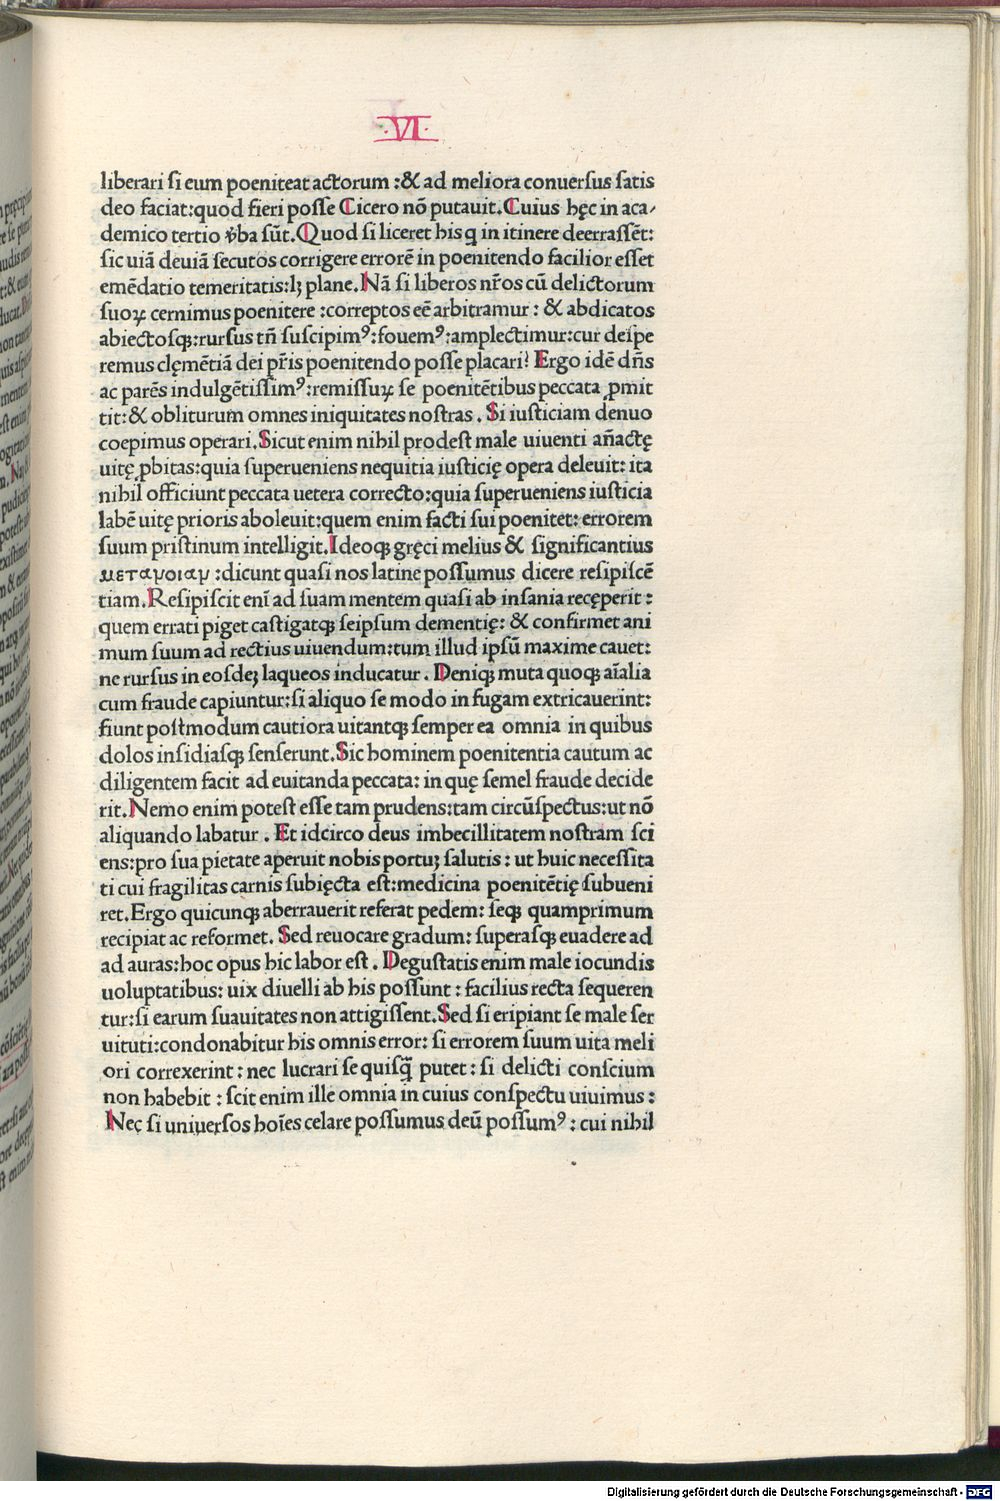 ·VI·
liberari si eum poeniteat actorum :& ad meliora conuersus satis
deo faciat:quod fieri posse Cicero nō putauit.Cuius hęc in aca⸗
demico tertio v̄ba sūt.Quod si liceret his q in itinere deerrassēt:
sic uiā deuiā secutos corrigere errorē in poenitendo facilior esset
emēdatio temeritatis:lꝫ plane.Nā si liberos nr̄os cū delictorum
suoꝝ cernimus poenitere :correptos eē arbitramur : & abdicatos
abiectosqꝫ:rursus tn̄ suscipimꝰ:fouemꝰ:amplectimur:cur despe
remus clęmētiā dei pr̄is poenitendo posse placari? Ergo idē dn̄s
ac parēs indulgētissimꝰ:remissuꝝ se poenitētibus peccata ꝓmit
tit:& obliturum omnes iniquitates nostras . Si iusticiam denuo
coepimus operari.Sicut enim nihil prodest male uiuenti an̄actę
uitę ꝓbitas:quia superueniens nequitia iusticię opera deleuit: ita
nihil officiunt peccata uetera correcto:quia superueniens iusticia
labē uitę prioris aboleuit:quem enim facti sui poenitet: errorem
suum pristinum intelligit.Ideoqꝫ gręci melius & significantius
μεταμοιαμ :dicunt quasi nos latine possumus dicere resipiscē
tiam.Resipiscit eni̅ ad suam mentem quasi ab insania recęperit :
quem errati piget castigatqꝫ seipsum dementię: & confirmet ani
mum suum ad rectius uiuendum:tum illud ipsū maxime cauet:
ne rursus in eosdeꝫ laqueos inducatur . Deniqꝫ muta quoqꝫ ai̅alia
cum fraude capiuntur:si aliquo se modo in fugam extricauerint:
fiunt postmodum cautiora uitantqꝫ semper ea omnia in quibus
dolos insidiasqꝫ senserunt.Sic hominem poenitentia cautum ac
diligentem facit ad euitanda peccata: in quę semel fraude decide
rit.Nemo enim potest esse tam prudens:tam circūspectus:ut nō
aliquando labatur . Et idcirco deus imbecillitatem nostram sci
ens:pro sua pietate aperuit nobis portuꝫ salutis : ut huic necessita
ti cui fragilitas carnis subięcta est:medicina poenitētię subueni
ret.Ergo quicunqꝫ aberrauerit referat pedem: seqꝫ quamprimum
recipiat ac reformet. Sed reuocare gradum: superasqꝫ euadere ad
ad auras:hoc opus hic labor est . Degustatis enim male iocundis
uoluptatibus: uix diuelli ab his possunt : facilius recta sequeren
tur:si earum suauitates non attigissent.Sed si eripiant se male ser
uituti:condonabitur his omnis error: si errorem suum uita meli
ori correxerint : nec lucrari se quisq̄ putet : si delicti conscium
non habebit : scit enim ille omnia in cuius conspectu uiuimus :
Nec si uniuersos hoi̅es celare possumus deū possumꝰ : cui nihil
Digitalisierung gefördert durch die Deutsche Forschungsgemeinschaft - DFG